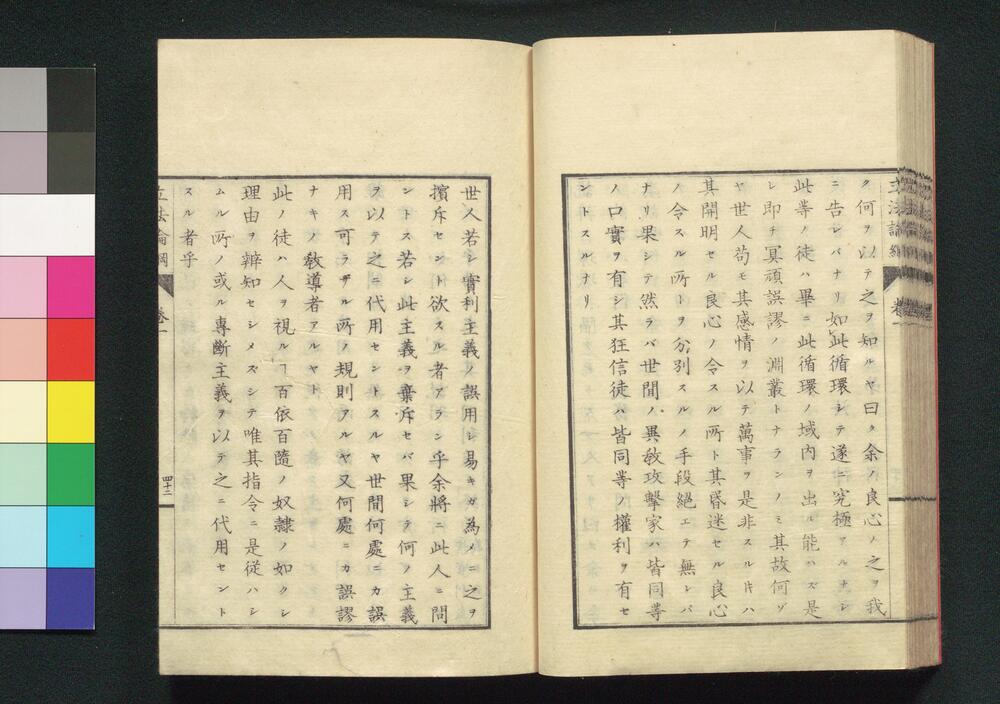 立法論綱 卷一
ク何ヲ以テ之ヲ知ルヤ曰ク余ノ良心ノ之ヲ我
ニ告レバナリ如此循環シテ遂ニ究極アルナシ
此等ノ徒ハ畢ニ此循環ノ域内ヲ出ル能ハズ是
レ即チ冥頑誤謬ノ淵叢トナランノミ其故何ゾ
ヤ世人苟モ其感情ヲ以テ萬事ヲ是非スル𪜈ハ
其開明セル良心ノ令スル所ト其昏迷セル良心
ノ令スル所トヲ分別スルノ手段絶エテ無レバ
ナリ果シテ然ラバ世間ノ異教攻撃家ハ皆同等
ノ口實ヲ有シ其狂信徒ハ皆同等ノ權利ヲ有セ
ントスルナリ
世人若シ實利主義ノ誤用シ易キガ為メニ之ヲ
擯斥セント欲スル者アラン乎余將ニ此人ニ問
ントス若シ此主義ヲ棄斥セバ果シテ何ノ主義
ヲ以テ之ニ代用セントスルヤ世間何處ニカ誤
用ス可ラザル所ノ規則アルヤ又何處ニカ誤謬
ナキノ教導者アルヤト
此ノ徒ハ人ヲ視ルヿ百依百隨ノ奴隷ノ如クシ
理由ヲ辯知セシメズシテ唯其指令ニ是從ハシ
ムル所ノ或ル專斷主義ヲ以テ之ニ代用セント
スル者乎
立法論綱 卷一 四十二